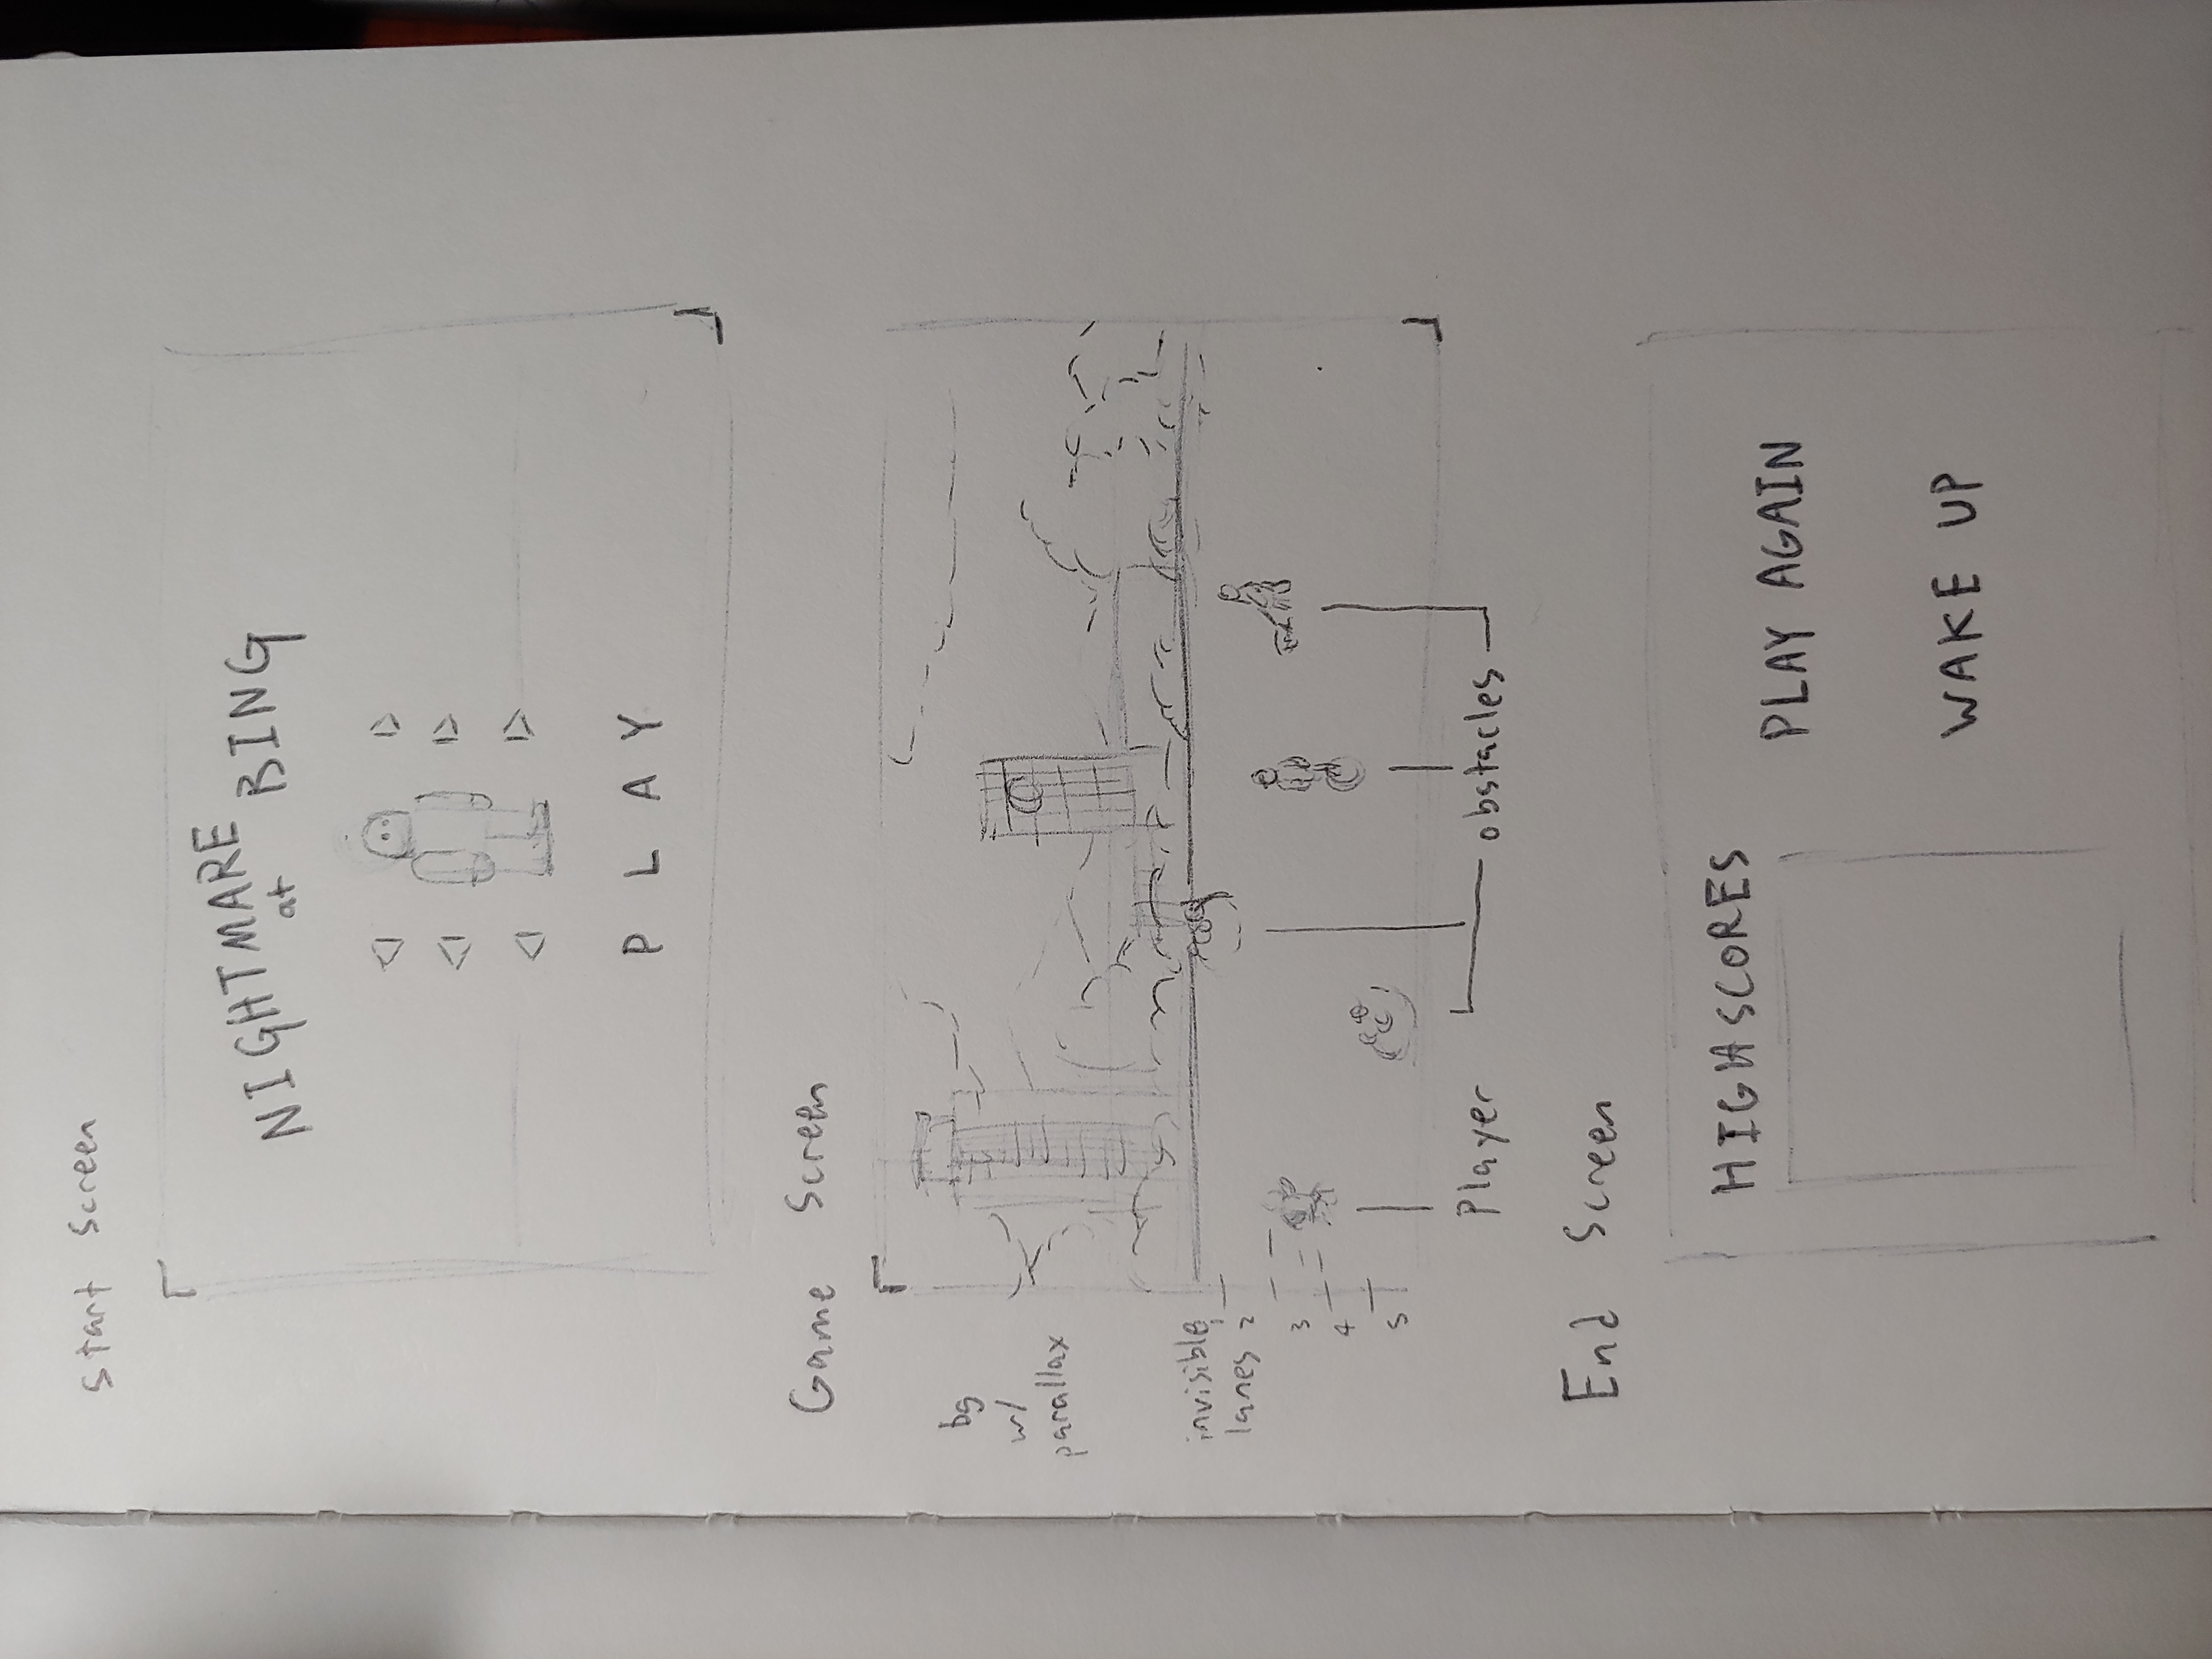 Start Screen
NIGHTMARE at BING
PLAY
Game Screen
bg
w/
parallax
invisible
lanes
1
2
3
4
5
Player
obstacles
End Screen
HIGHSCORES
PLAY AGAIN
WAKE UP